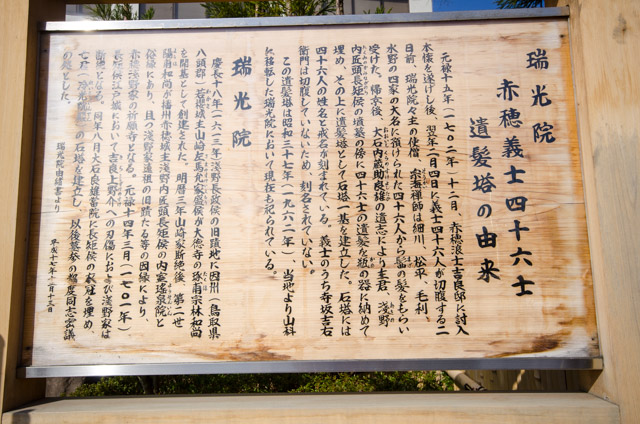 瑞光院
赤穂義士四十六士
遺髪塔の由来
元禄十五年(一七〇二年)十二月、赤穂浪士吉良邸に討入
本懐を遂げし後、翌年二月四日に義士四十六人が切腹する二
日前、瑞光院々主の使僧、宗海禅師は細川、松平、毛利、
水野の四家の大名に預けられた四十六人から髻の髪をもらい
受けた。帰京後、大石内蔵助良雄の遺志により主君、浅野
内匠頭長矩侯の墳墓の傍に四十六士の遺髪を瓶の器に納めて
埋め、その上に遺髪塔として石塔一基を建立した。石塔には
四十六人の姓名と戒名が刻まれている。義士のうち寺坂吉右
衛門は切腹していないため、刻名されていない。
この遺髪塔は昭和三十七年(一九六二年)、当地より山科
に移転した瑞光院において現在も祀られている。
瑞光院
慶長十八年(一六一三年)浅野長政侯の旧蹟地に因州(鳥取県
八頭郡)若桜城主山崎左馬允家盛侯が大徳寺の琢甫宗林和尚
を開基として創建された。明暦三年山崎家断絶後、第二世
陽甫和尚が播州赤穂城主浅野内匠頭長矩侯の内室瑤泉院と
俗縁にあり、且つ浅野家遠祖の旧蹟たる等の因縁により、
赤穂浅野家の祈願寺となる。元禄十四年三月(一七〇一年)
長矩侯江戸城において吉良上野介への刃傷におよび浅野家は
断絶となる。同年八月大石良雄当院に長矩侯の衣冠を埋め、
の石塔を建立し、以後墓参の都度同志密議
の処とした。
瑞光院由緒書より
平成十七年十二月十三日